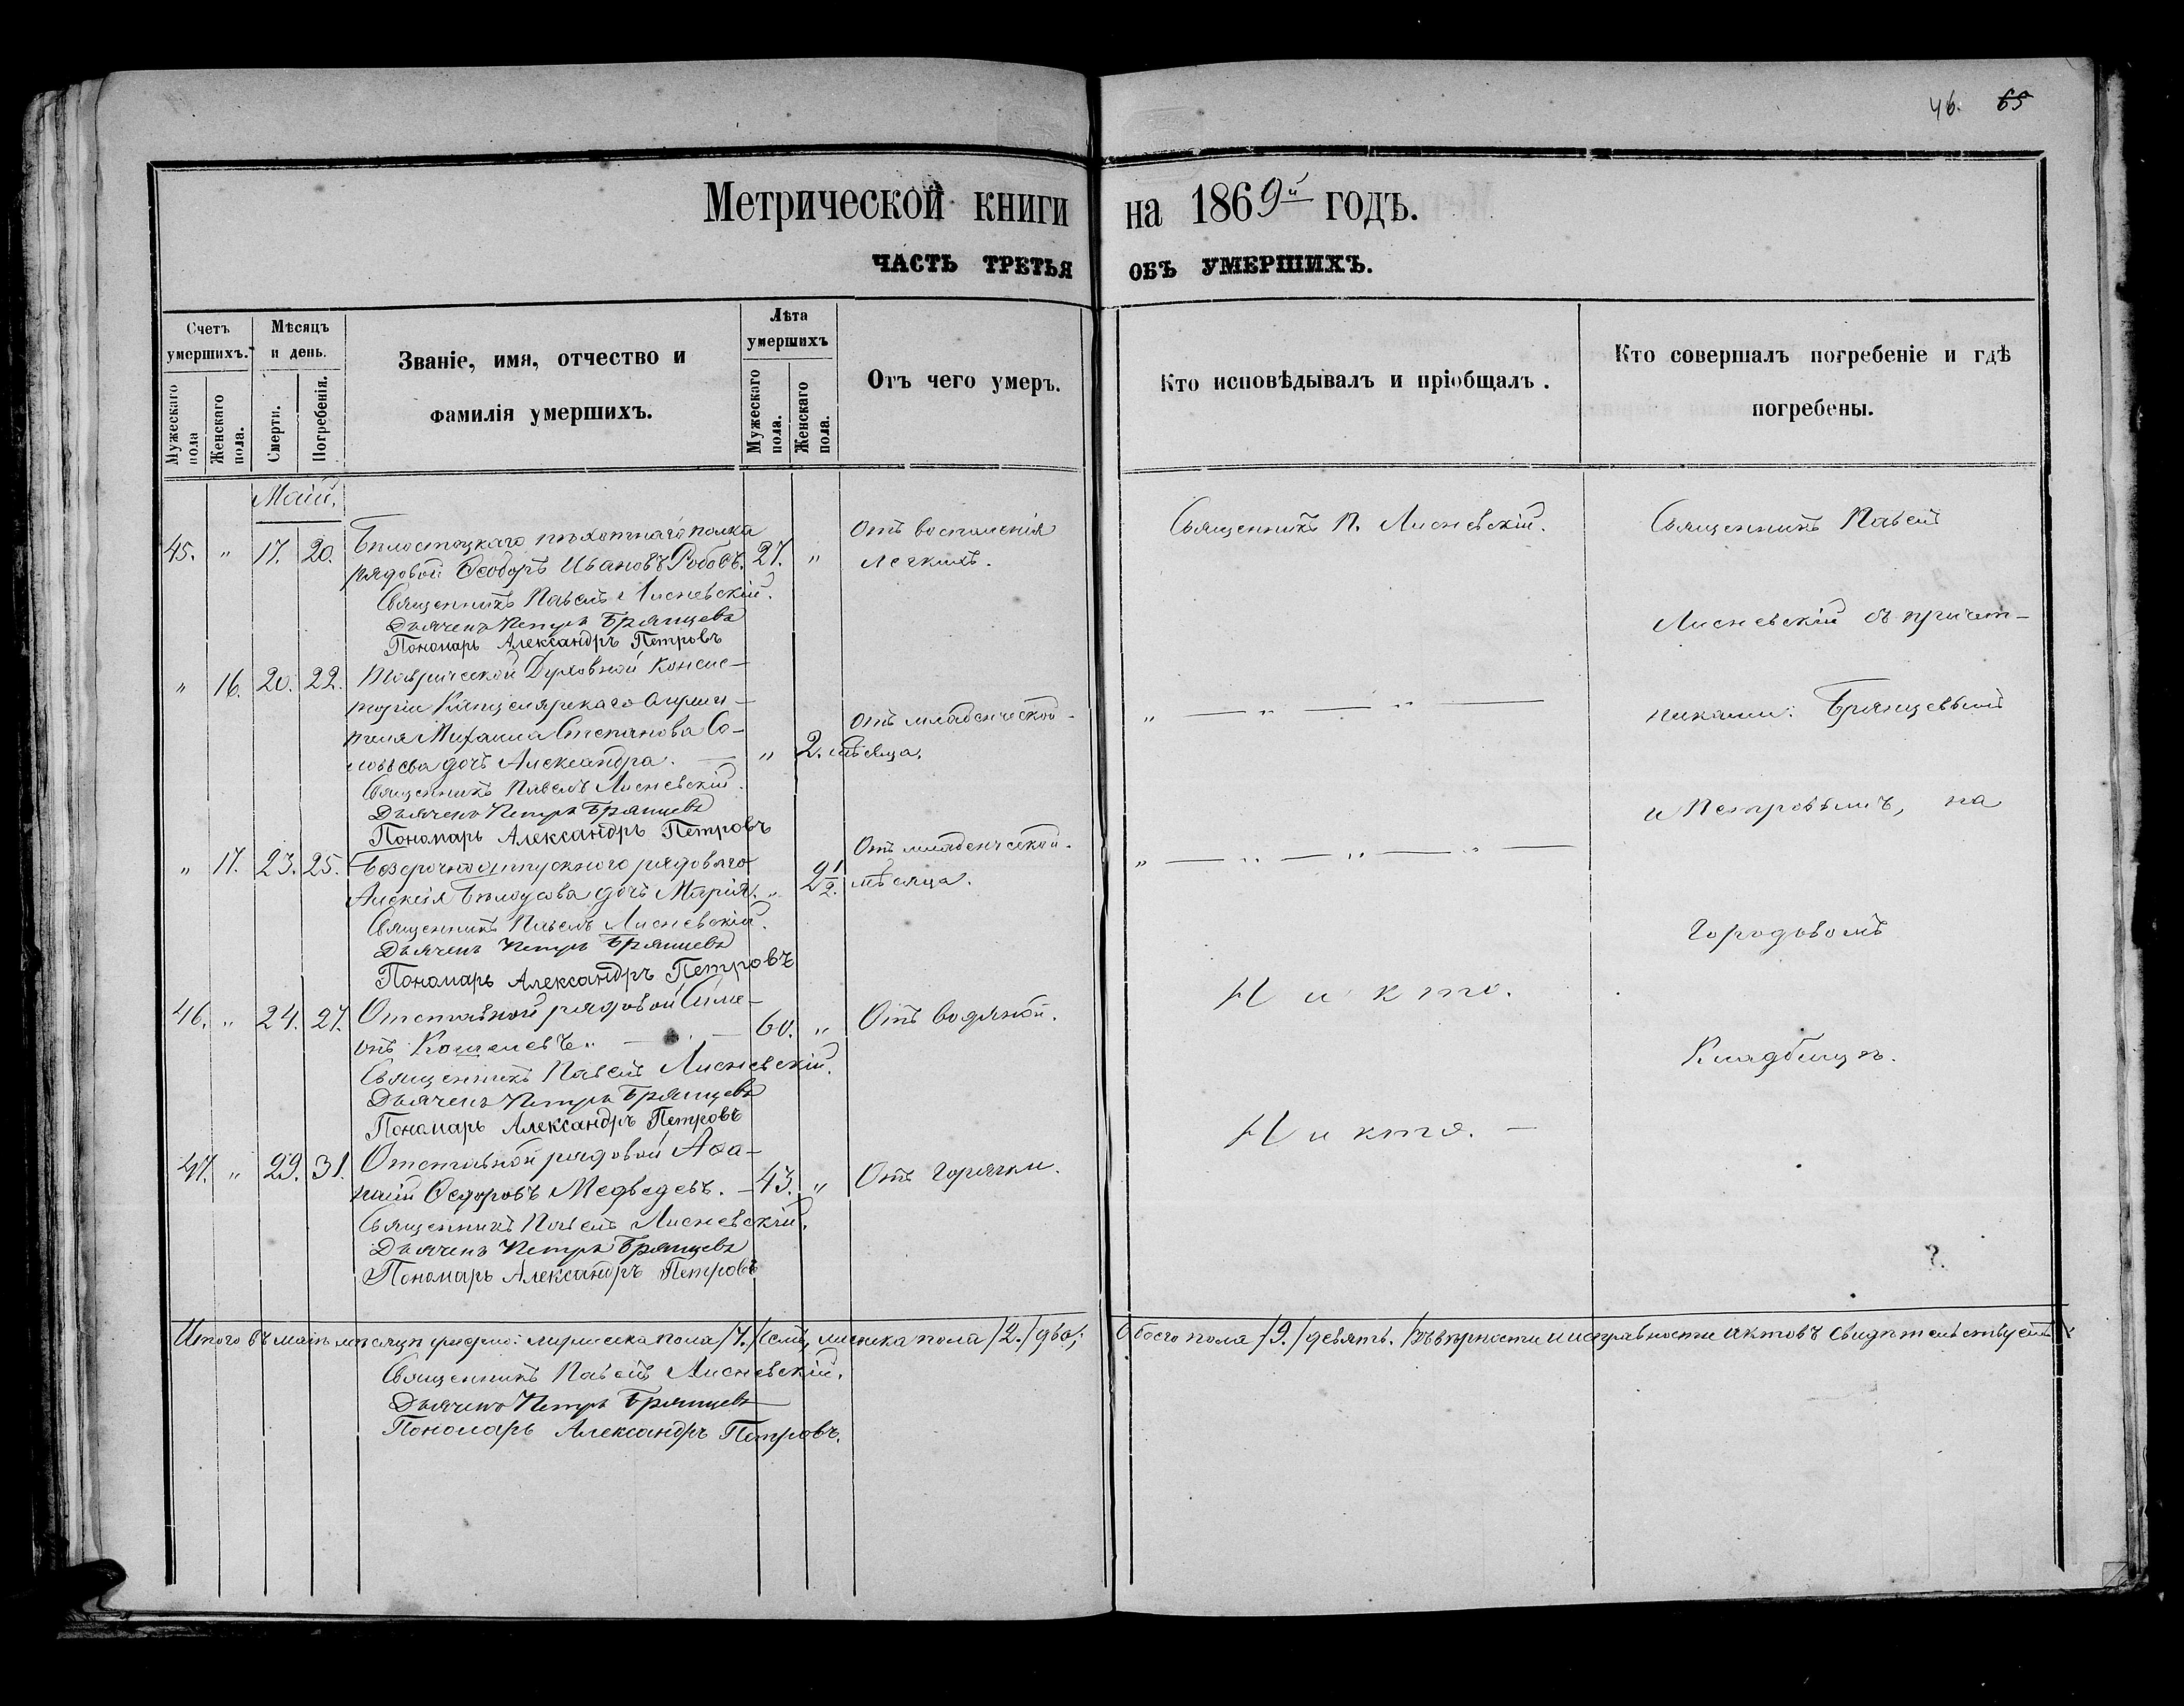 46. 65
Метрической книги на 1869й годъ.
ЧАСТЬ ТРЕТЬЯ ОБЪ УМЕРШИХЪ.
Счетъ умершихъ.
Мужескаго пола
Женскаго пола.
Мѣсяцъ и день.
Смерти.
Погребенія.
Званіе, имя, отчество и
фамилія умершихъ.
Лѣта умершихъ
Мужескаго пола.
Женскаго пола.
Отъ чего умеръ.
Кто исповѣдывалъ и пріобщалъ.
Кто совершалъ погребеніе и гдѣ
погребены.
Маій.
45. " 17. 20. Бѣлостоцкаго пѣхотнаго полка
рядовой Ѳеодоръ Ивановъ Робовъ. 27. "
Отъ воспаленія
легкихъ.
Священникъ П. Лисневскій.
Священникъ Павелъ Лисневскій.
Дьячекъ Петръ Брянцевъ
Пономарь Александръ Петровъ
" 16. 20. 22. Таврической Духовной Консис-
торіи Канцелярскаго служи-
теля Михаила Степанова Со-
ловьева дочь Александра. — " 2. мѣсяца.
Отъ младенческой.
" — " — " —
Священникъ Павелъ Лисневскій.
Дьячекъ Петръ Брянцевъ
Пономарь Александръ Петровъ
" 17. 23. 25. Безсрочноотпускного рядоваго
Алексія Бѣлоусова дочь Марія. " 2 1/2. мѣсяца.
Отъ младенческой.
" — " — " — " —
Священникъ Павелъ Лисневскій.
Дьячекъ Петръ Брянцевъ
Пономарь Александръ Петровъ
46. " 24. 27. Отставной рядовой Симе-
онъ Кошелевъ. — 60. "
Отъ водяной.
Никто.
Священникъ Павелъ Лисневскій.
Дьячекъ Петръ Брянцевъ
Пономарь Александръ Петровъ
47. " 29. 31. Отставной рядовой Аѳа-
насій Ѳедоровъ Медведевъ. — 43. "
Отъ горячки.
Никто. —
Священникъ Павелъ Лисневскій.
Дьячекъ Петръ Брянцевъ
Пономарь Александръ Петровъ
Священникъ Павелъ
Лисневскій съ причет-
никами: Брянцевымъ
и Петровымъ, на
городовомъ
Кладбищѣ.
Итого въ маѣ мѣсяцѣ умерло: мужеска пола /7./ семь, женска пола /2./ два; обоего пола /9./ девять. /Въ вѣрности и исправности актовъ свидѣтельствуемъ
Священникъ Павелъ Лисневскій.
Дьячекъ Петръ Брянцевъ
Пономарь Александръ Петровъ.